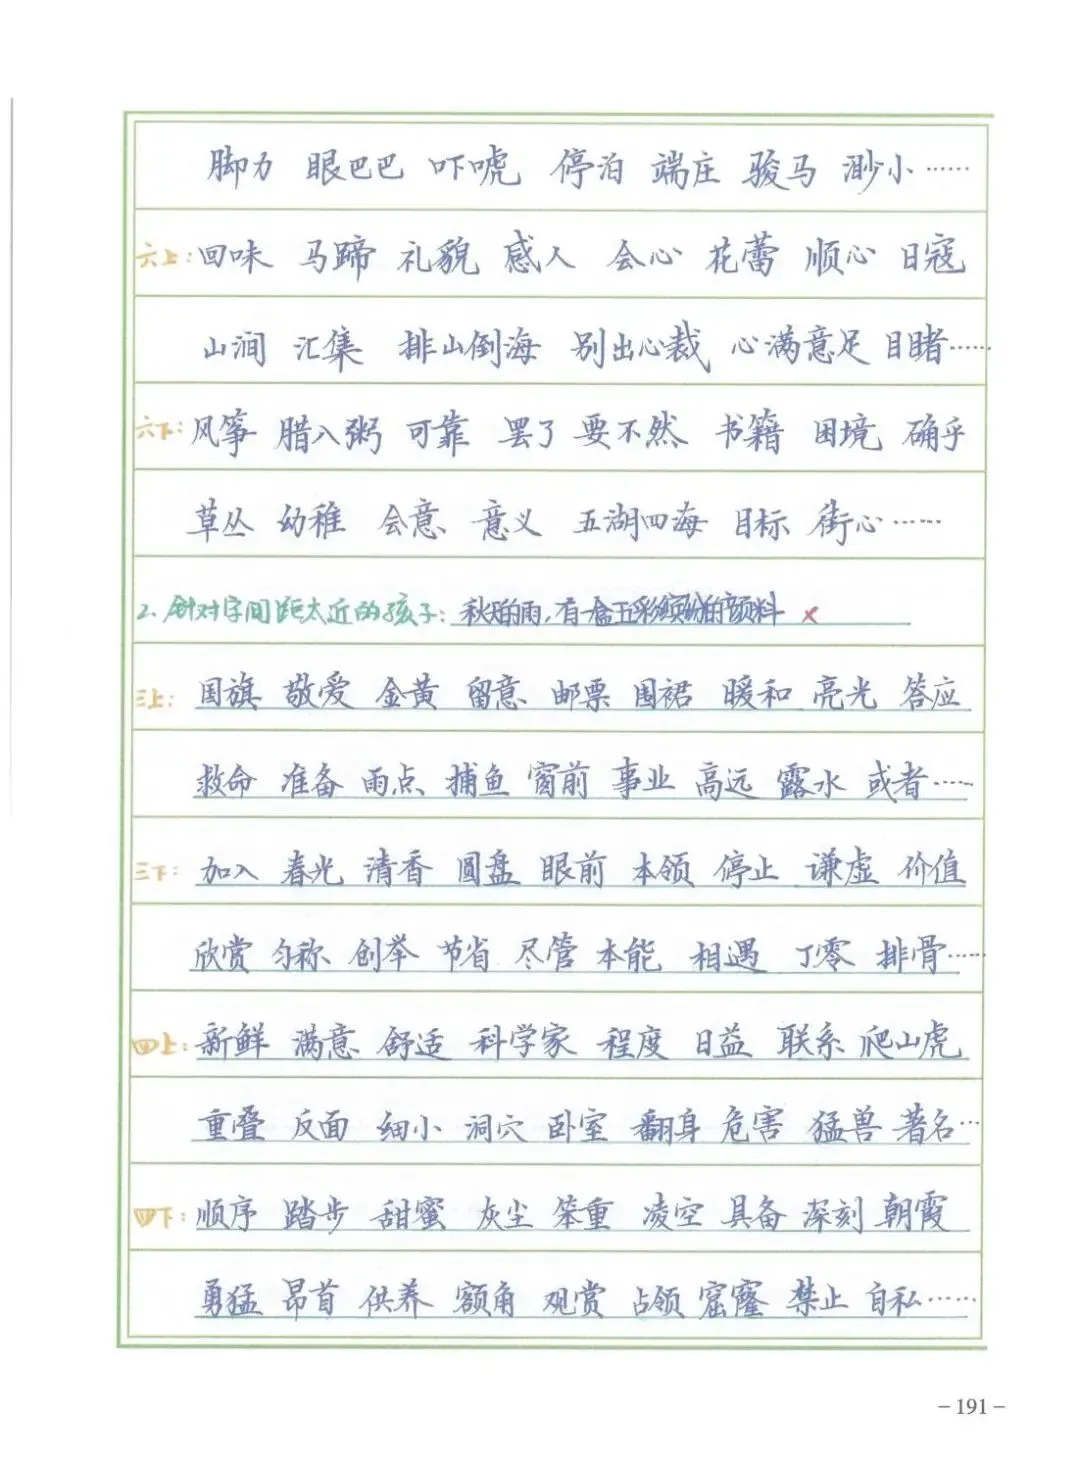 脚力 眼巴巴 吓唬 停泊 端庄 骏马 渺小……
六上：回味 马蹄 礼貌 感人 会心 花蕾 顺心 日寇
山涧 汇集 排山倒海 别出心裁 心满意足 目睹……
六下：风筝 腊八粥 可靠 罢了 要不然 书籍 困境 确乎
草丛 幼稚 会意 意义 五湖四海 目标 街心……
2、针对字间距太近的孩子：秋天的雨，有一盒五彩缤纷的颜料 ×
三上：国旗 敬爱 金黄 留意 邮票 围裙 暖和 亮光 答应
救命 准备 雨点 捕鱼 窗前 事业 高远 露水 或者……
三下：加入 春光 清香 圆盘 眼前 本领 停止 谦虚 价值
欣赏 匀称 创举 节省 尽管 本能 相遇 丁零 排骨……
四上：新鲜 满意 舒适 科学家 程度 日益 联系 爬山虎
重叠 反面 细小 洞穴 卧室 翻身 危害 猛兽 著名…
四下：顺序 踏步 甜蜜 灰尘 笨重 凌空 具备 深刻 朝霞
勇猛 昂首 供养 额角 观赏 占领 窟窿 禁止 自私……
－191－